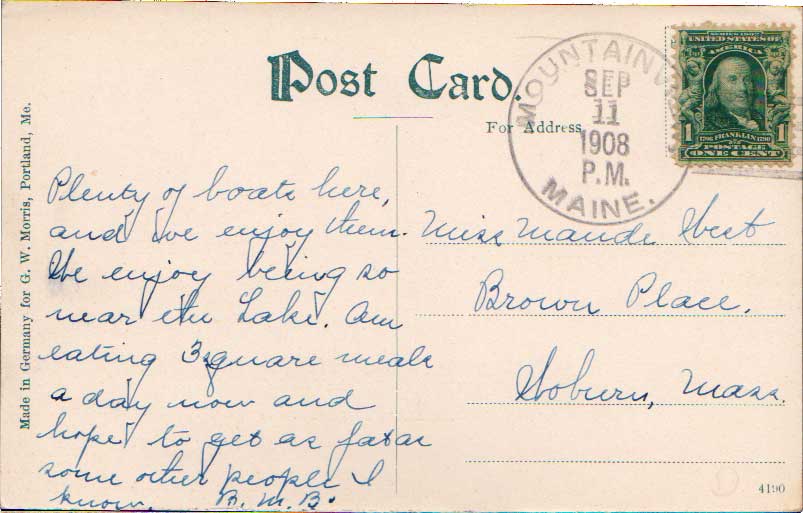 Post Card.
For Address
MOUNTAINV
SEP
11
1908
P.M.
MAINE.
SERIES 1902
UNITED STATES OF
AMERICA
1 1706 FRANKLIN 1790 1
POSTAGE
ONE CENT
Made in Germany for G. W. Morris, Portland, Me.
Plenty of boats here,
and we enjoy them.
We enjoy being so
near the Lake. Am
eating 3 square meals
a day now and
hope to get as fat as
some other people I
know. B. M. B.
Miss Maude West
Brown Place.
Woburn, Mass.
4190